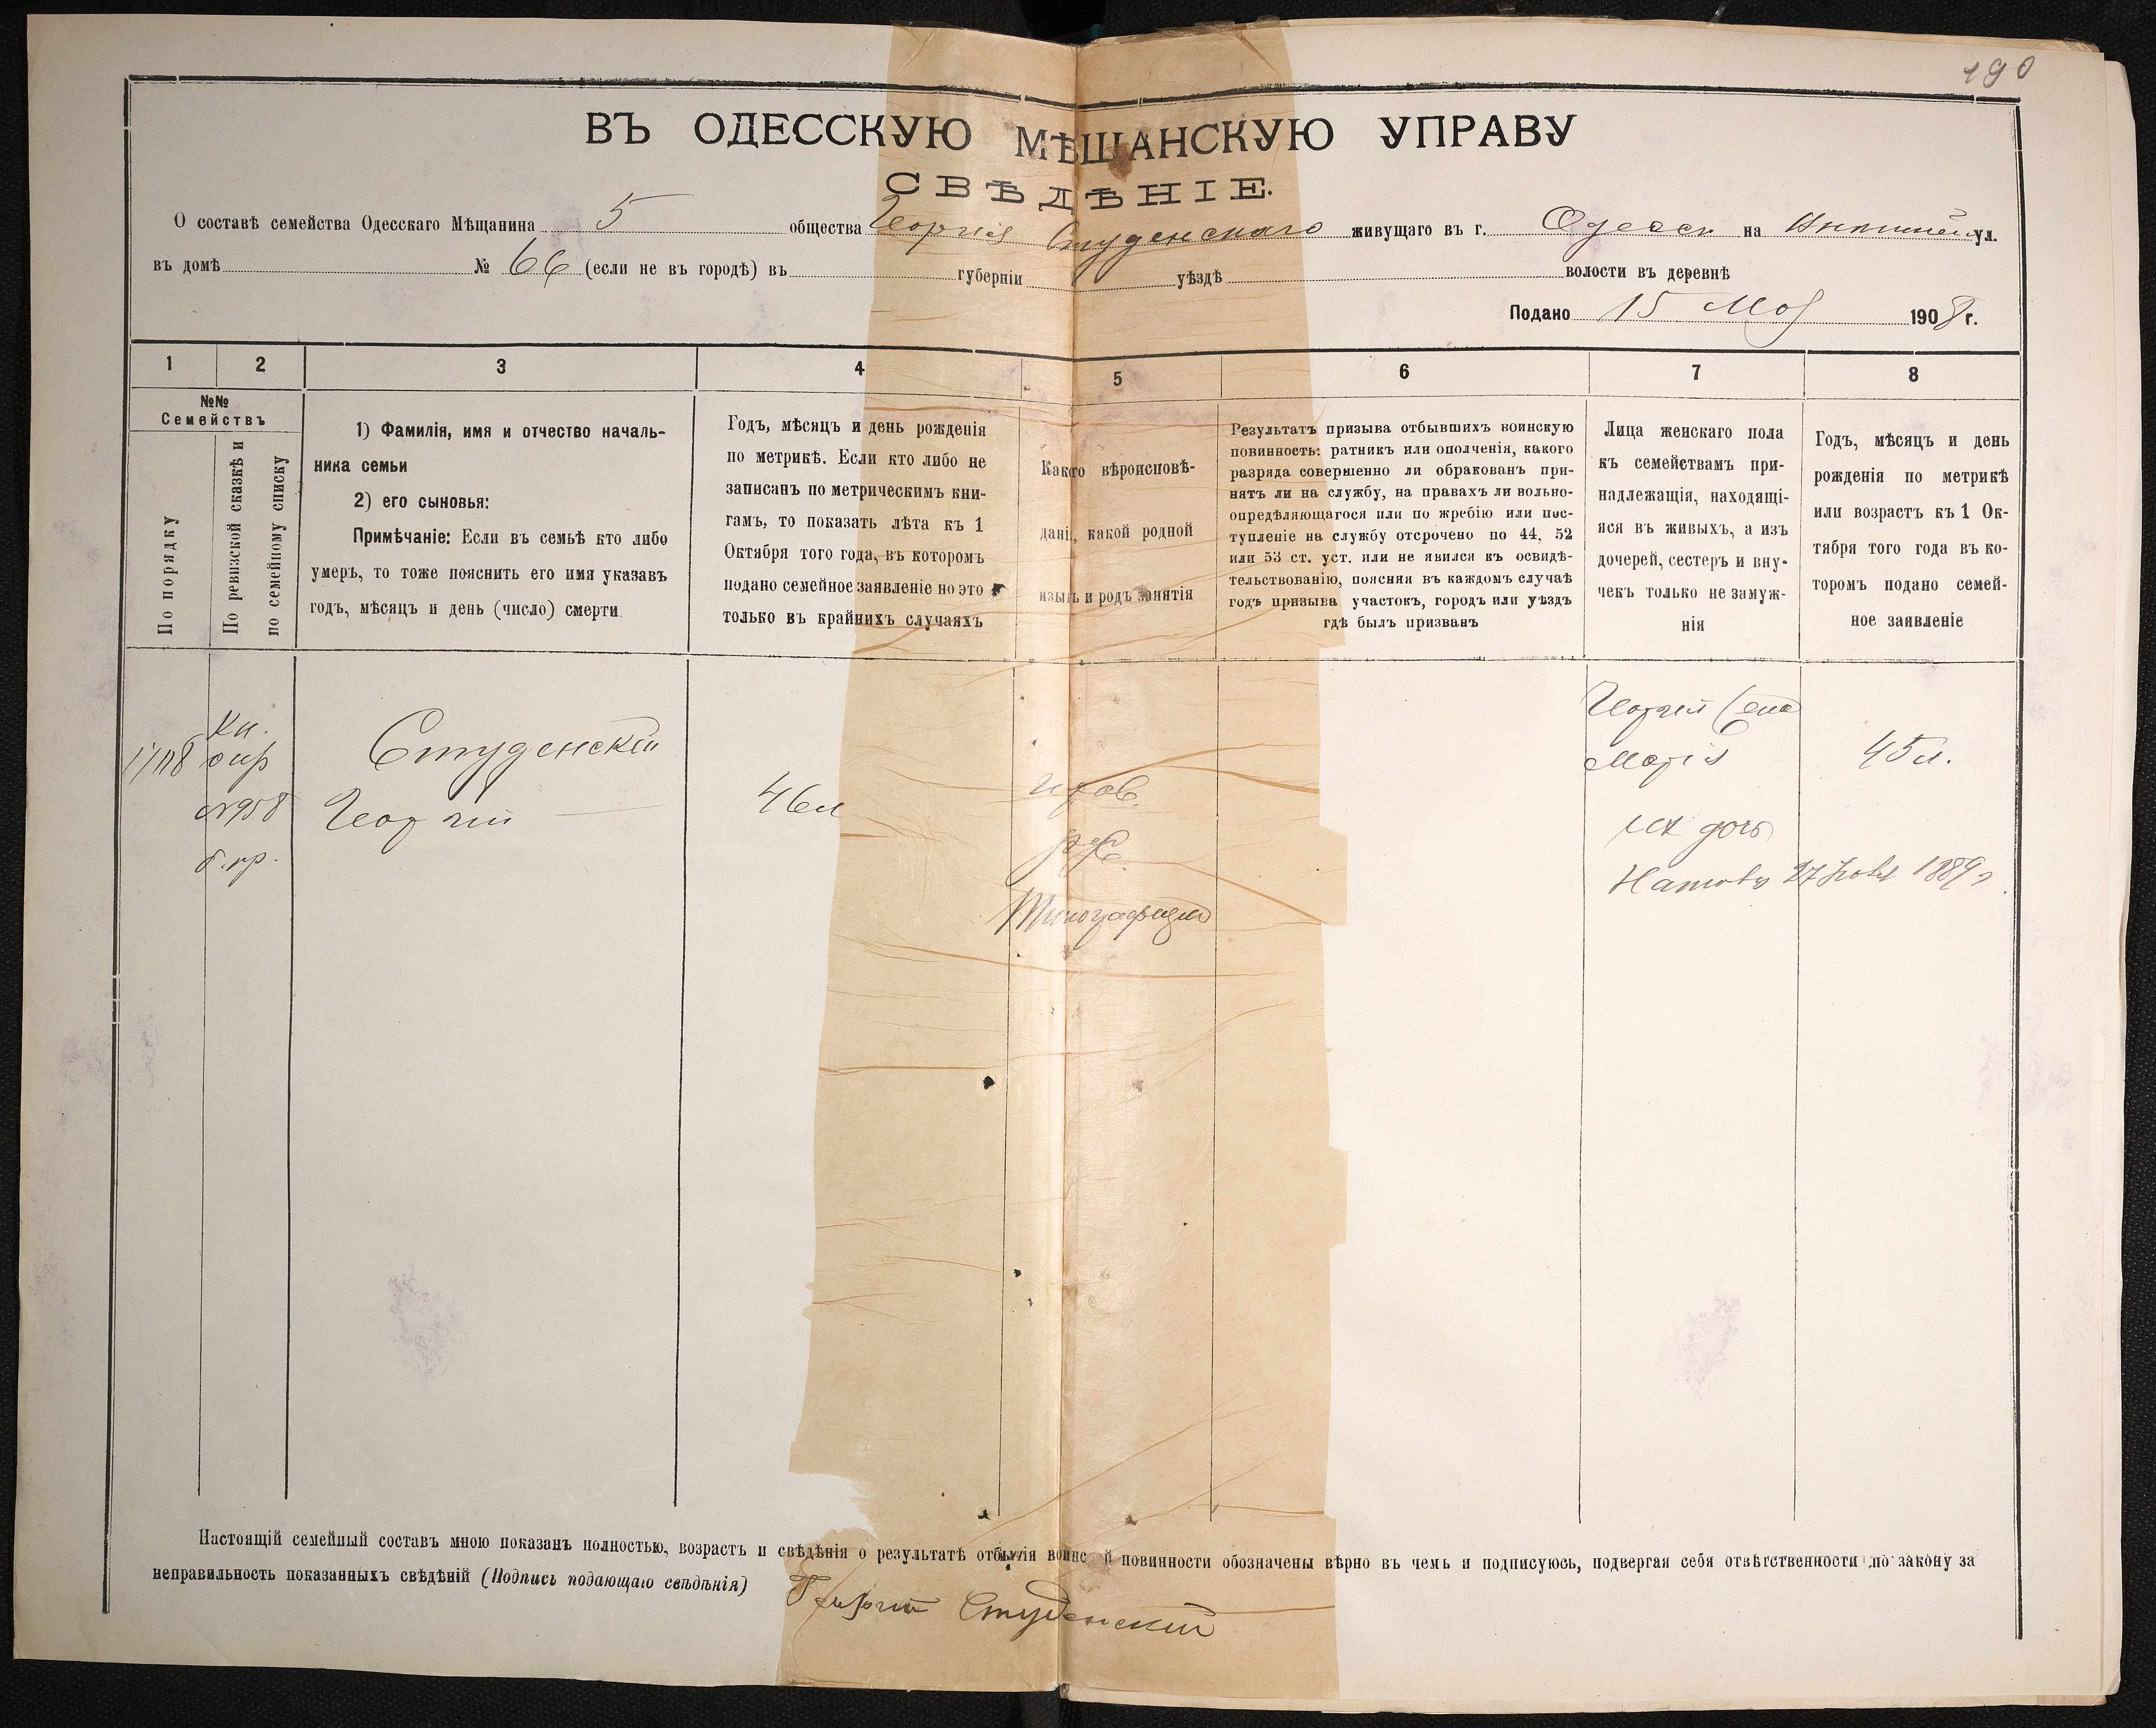 190
ВЪ ОДЕССКУЮ МѢЩАНСКУЮ УПРАВУ
СВѢДѢНІЕ.
О составѣ семейства Одесскаго Мѣщанина 5 общества Георгія Студенскаго живущаго въ г. Одессѣ на ул.
въ домѣ № 66 (если не въ городѣ) въ губерніи уѣздѣ волости въ деревнѣ
Подано 15 Мая 1908 г.
1 2 3 4 5 6 7 8
№№
Семействъ
По порядку
По ревизской сказкѣ и
по семейному списку
1) Фамилія, имя и отчество началь-
ника семьи
2) его сыновья:
Примѣчаніе: Если въ семьѣ кто либо
умеръ, то тоже пояснить его имя указавъ
годъ, мѣсяцъ и день (число) смерти
Годъ, мѣсяцъ и день рожденія
по метрикѣ. Если кто либо не
записанъ по метрическимъ кни-
гамъ, то показать лѣта къ 1
Октября того года, въ которомъ
подано семейное заявленіе но это
только въ крайнихъ случаяхъ
Какого вѣроисповѣ-
данія, какой родной
языкъ и родъ занятія
Результатъ призыва отбывшихъ воинскую
повинность: ратникъ или ополченія, какого
разряда совершенно ли обракованъ при-
нятъ ли на службу, на правахъ ли вольно-
опредѣляющагося или по жребію или пос-
тупленіе на службу отсрочено по 44, 52
или 53 ст. уст. или не явился къ освидѣ-
тельствованію, поясняя въ каждомъ случаѣ
годъ призыва участокъ, городъ или уѣздъ
гдѣ былъ призванъ
Лица женскаго пола
къ семействамъ при-
надлежащія, находящі-
яся въ живыхъ, а изъ
дочерей, сестеръ и вну-
чекъ только не замуж-
нія
Годъ, мѣсяцъ и день
рожденія по метрикѣ
или возрастъ къ 1 Ок-
тября того года въ ко-
торомъ подано семей-
ное заявленіе
Кн.
№958
Студенскій
Георгій
46 л
прав.
рус.
Георгія жена
Марія 45 л.
их дочь
27 1889 г.
Настоящій семейный составъ мною показанъ полностью, возрастъ и свѣдѣнія о результатѣ отбытія воинской повинности обозначены вѣрно въ чемъ и подписуюсь, подвергая себя отвѣтственности по закону за
неправильность показанныхъ свѣдѣній (Подпись подающаго свѣдѣнія) Георгій Студенский